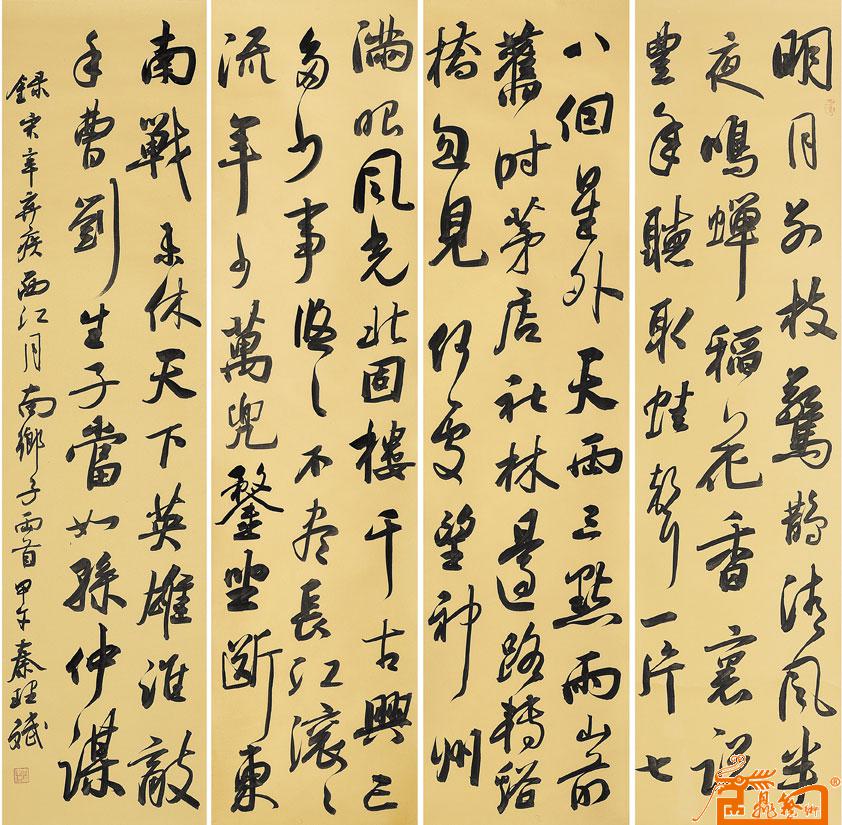 明月別枝驚鵲清風半
夜鳴蟬稻花香裏說
豐年聽取蛙聲一片七
八個星外天兩三點雨山前
舊時茅店社林邊路轉谿
橋忽見 何處望神州
滿眼風光北固樓千古興亡
多少事悠々不盡長江滾々
流年少萬兜鍪坐斷東
南戰未休天下英雄誰敵
手曹劉生子當如孫仲謀
録宋辛弃疾西江月南鄉子兩首甲午秦